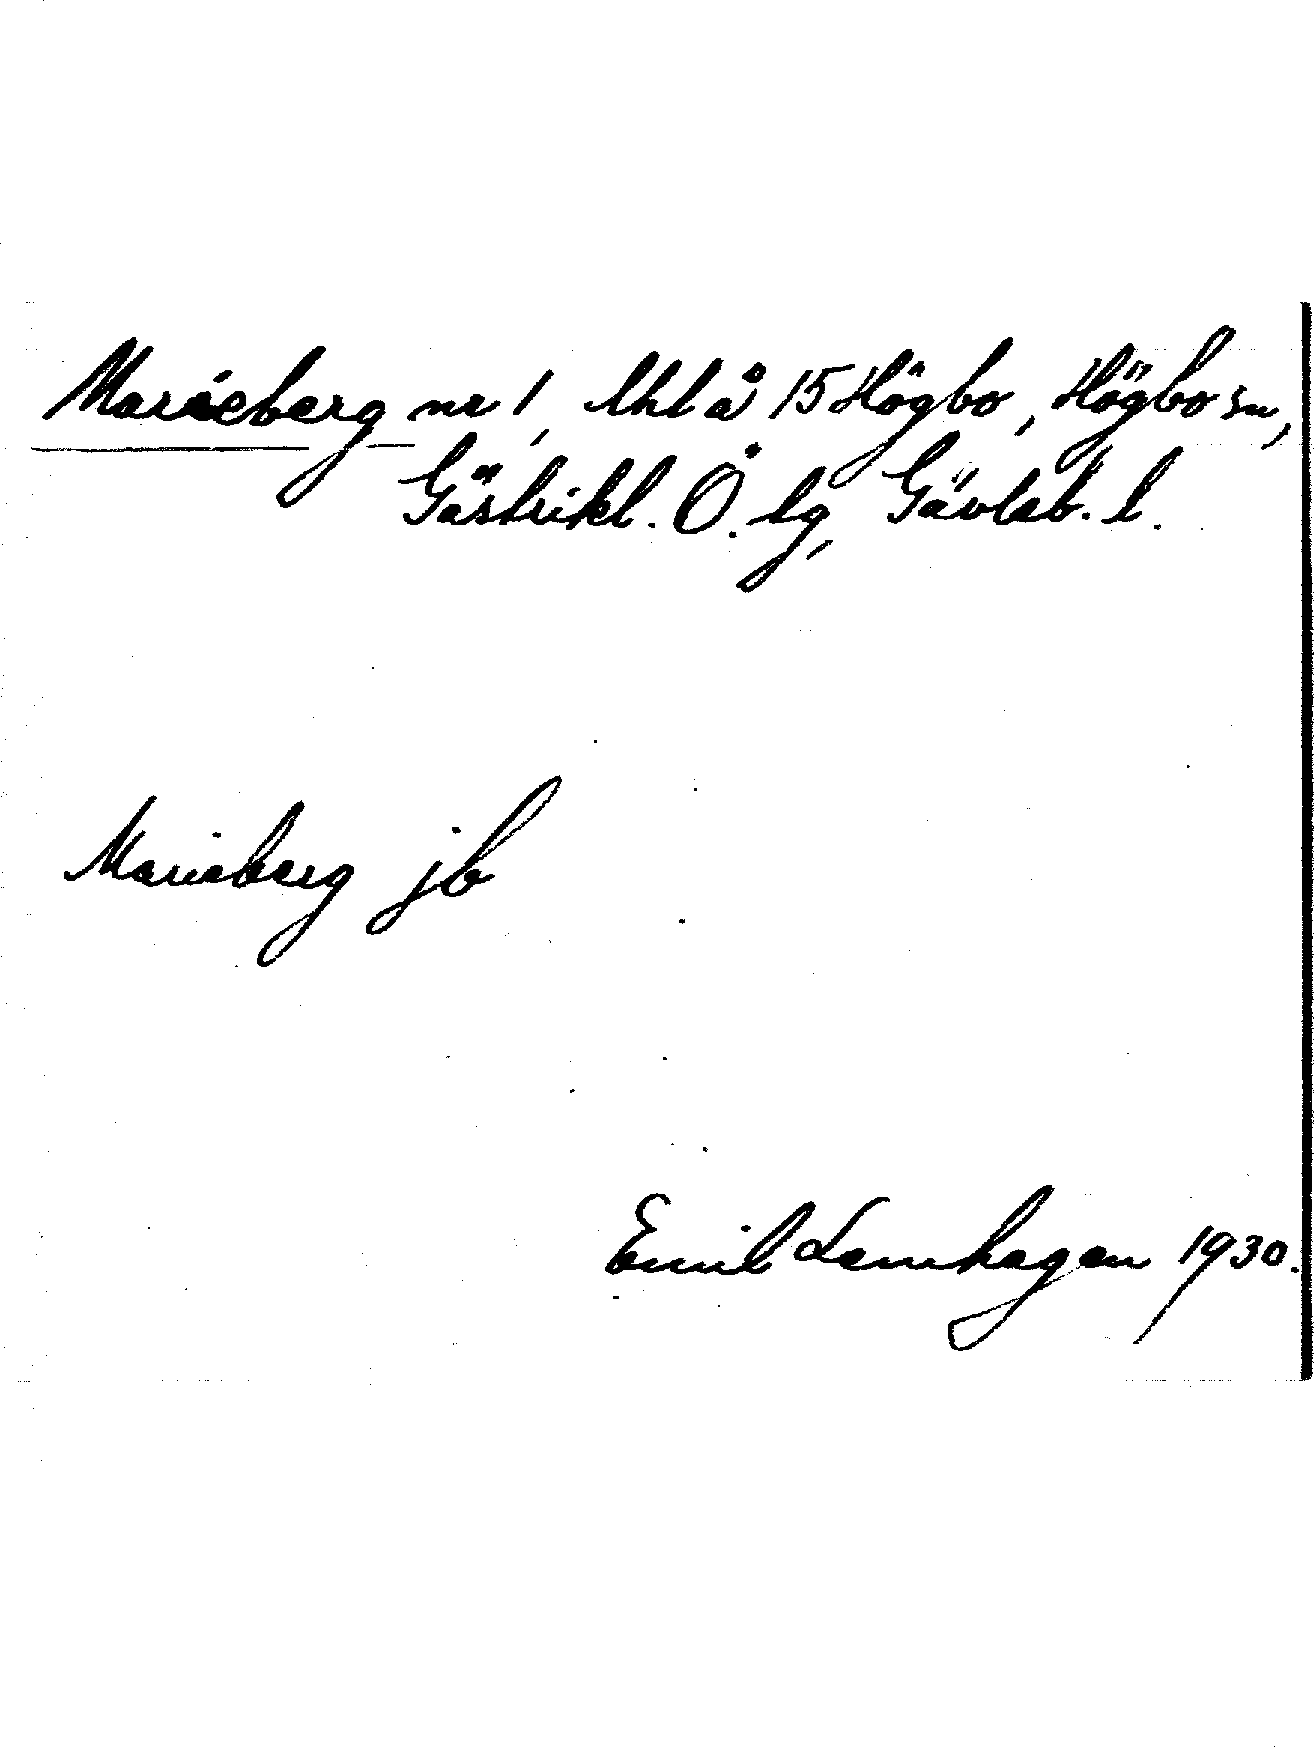 Marieberg nr 1, Uhl å 15 Högbo, Högbo sn,
Gästrikl. Ö. tg, Gävleb. l.
Marieberg jb
Emil Lennhagen 1930.